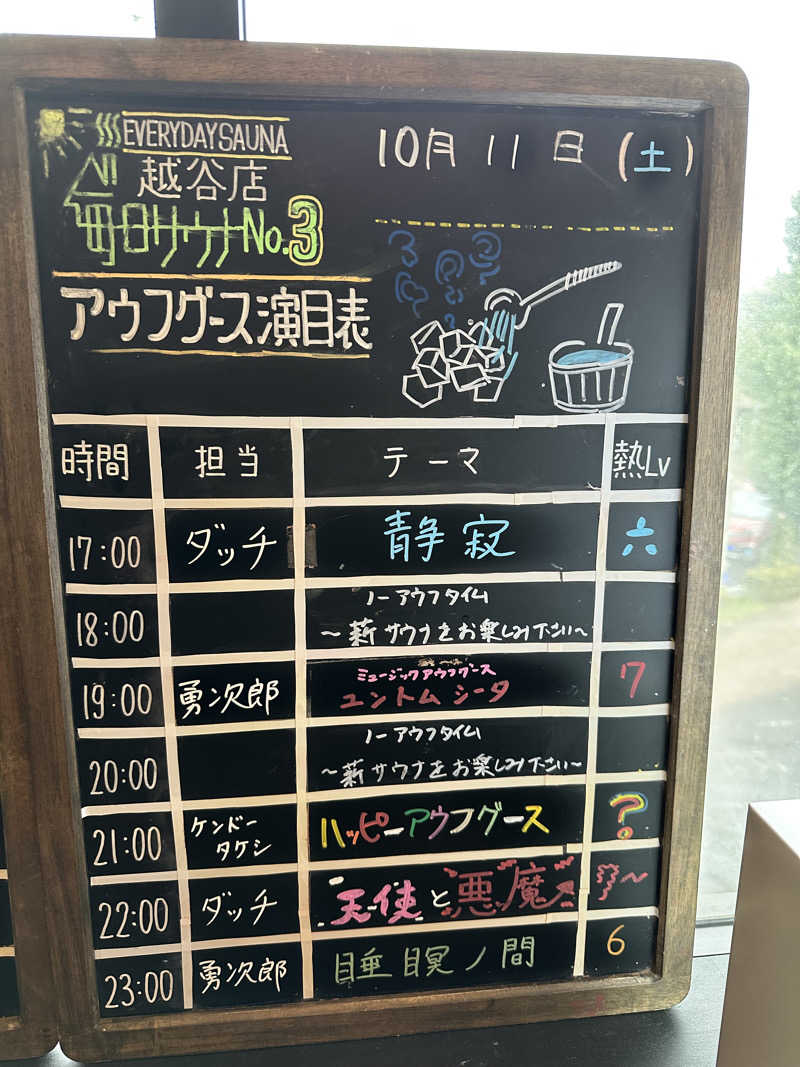 EVERYDAYSAUNA
10月 11日 (土)
越谷店
毎日サウナNo.3
アウフグース演目表
時間 担当 テーマ 熱Lv
17:00 ダッチ 静寂 六
18:00 ノーアウフタイム
～薪サウナをお楽しみ下さい～
ミュージックアウフグース
19:00 勇次郎 ユントムシータ 7
ノーアウフタイム
20:00 ～薪サウナをお楽しみ下さい～
21:00 ケンドータケシ ハッピーアウフグース ?
22:00 ダッチ 天使と悪魔
23:00 勇次郎 睡瞑ノ間 6